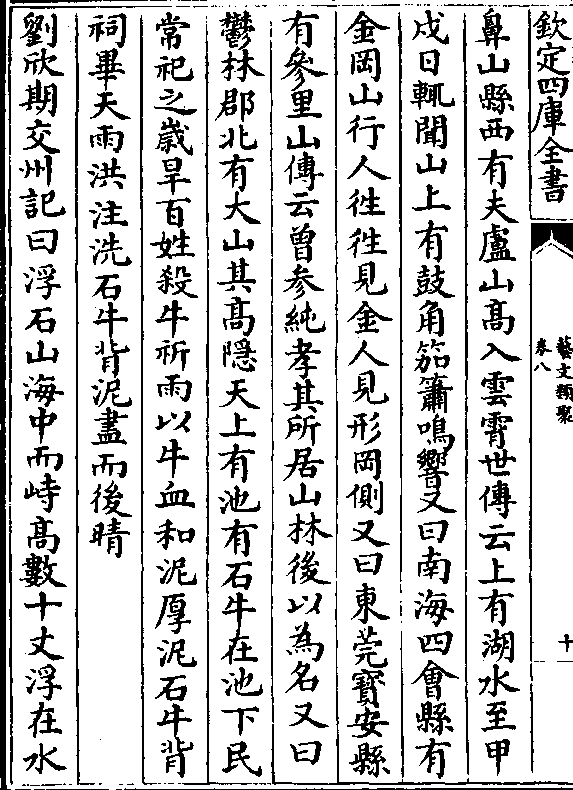 欽定四庫全書
藝文類聚
卷八
十
鼻山縣西有夫盧山高入雲霄世傳云上有湖水至甲
戍日輒聞山上有鼓角笳簫鳴響又曰南海四會縣有
金岡山行人徃徃見金人見形岡側又曰東莞寳安縣
有參里山傳云曾參純孝其所居山林後以為名又曰
鬱林郡北有大山其髙隠天上有池有石牛在池下民
常祀之嵗旱百姓殺牛祈雨以牛血和泥厚泥石牛背
祠畢天雨洪注洗石牛背泥盡而後晴
劉欣期交州記曰浮石山海中而峙高數十丈浮在水